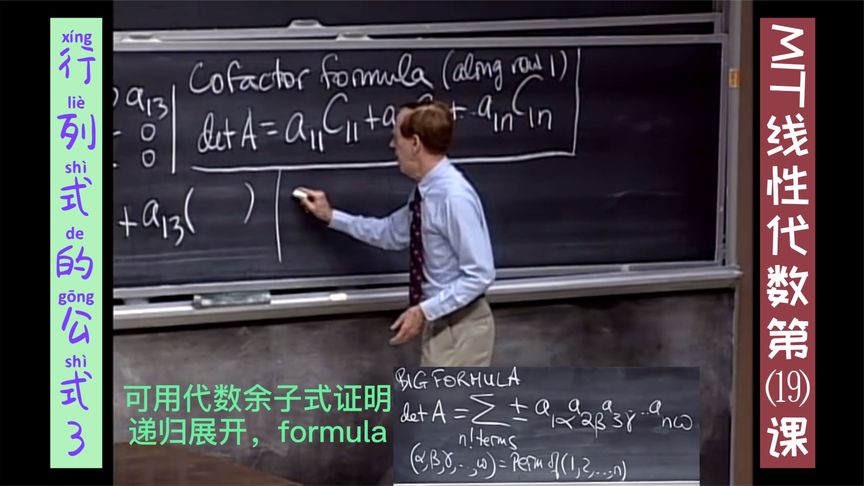 xíng
行
liè
列
shì
式
de
的
gōng
公
shì
式
3
a13
0
0
Cofactor formula (along row 1)
det A = a11 C11 + a + ·· a1n C1n
+ a13( )
MIT线性代数第(19)课
可用代数余子式证明
递归展开，formula
BIG FORMULA
det A = ∑ ± a1α a2β a3γ ··· anω
n! terms
(α,β,γ,..,ω) = Perm of (1,2,...,n)